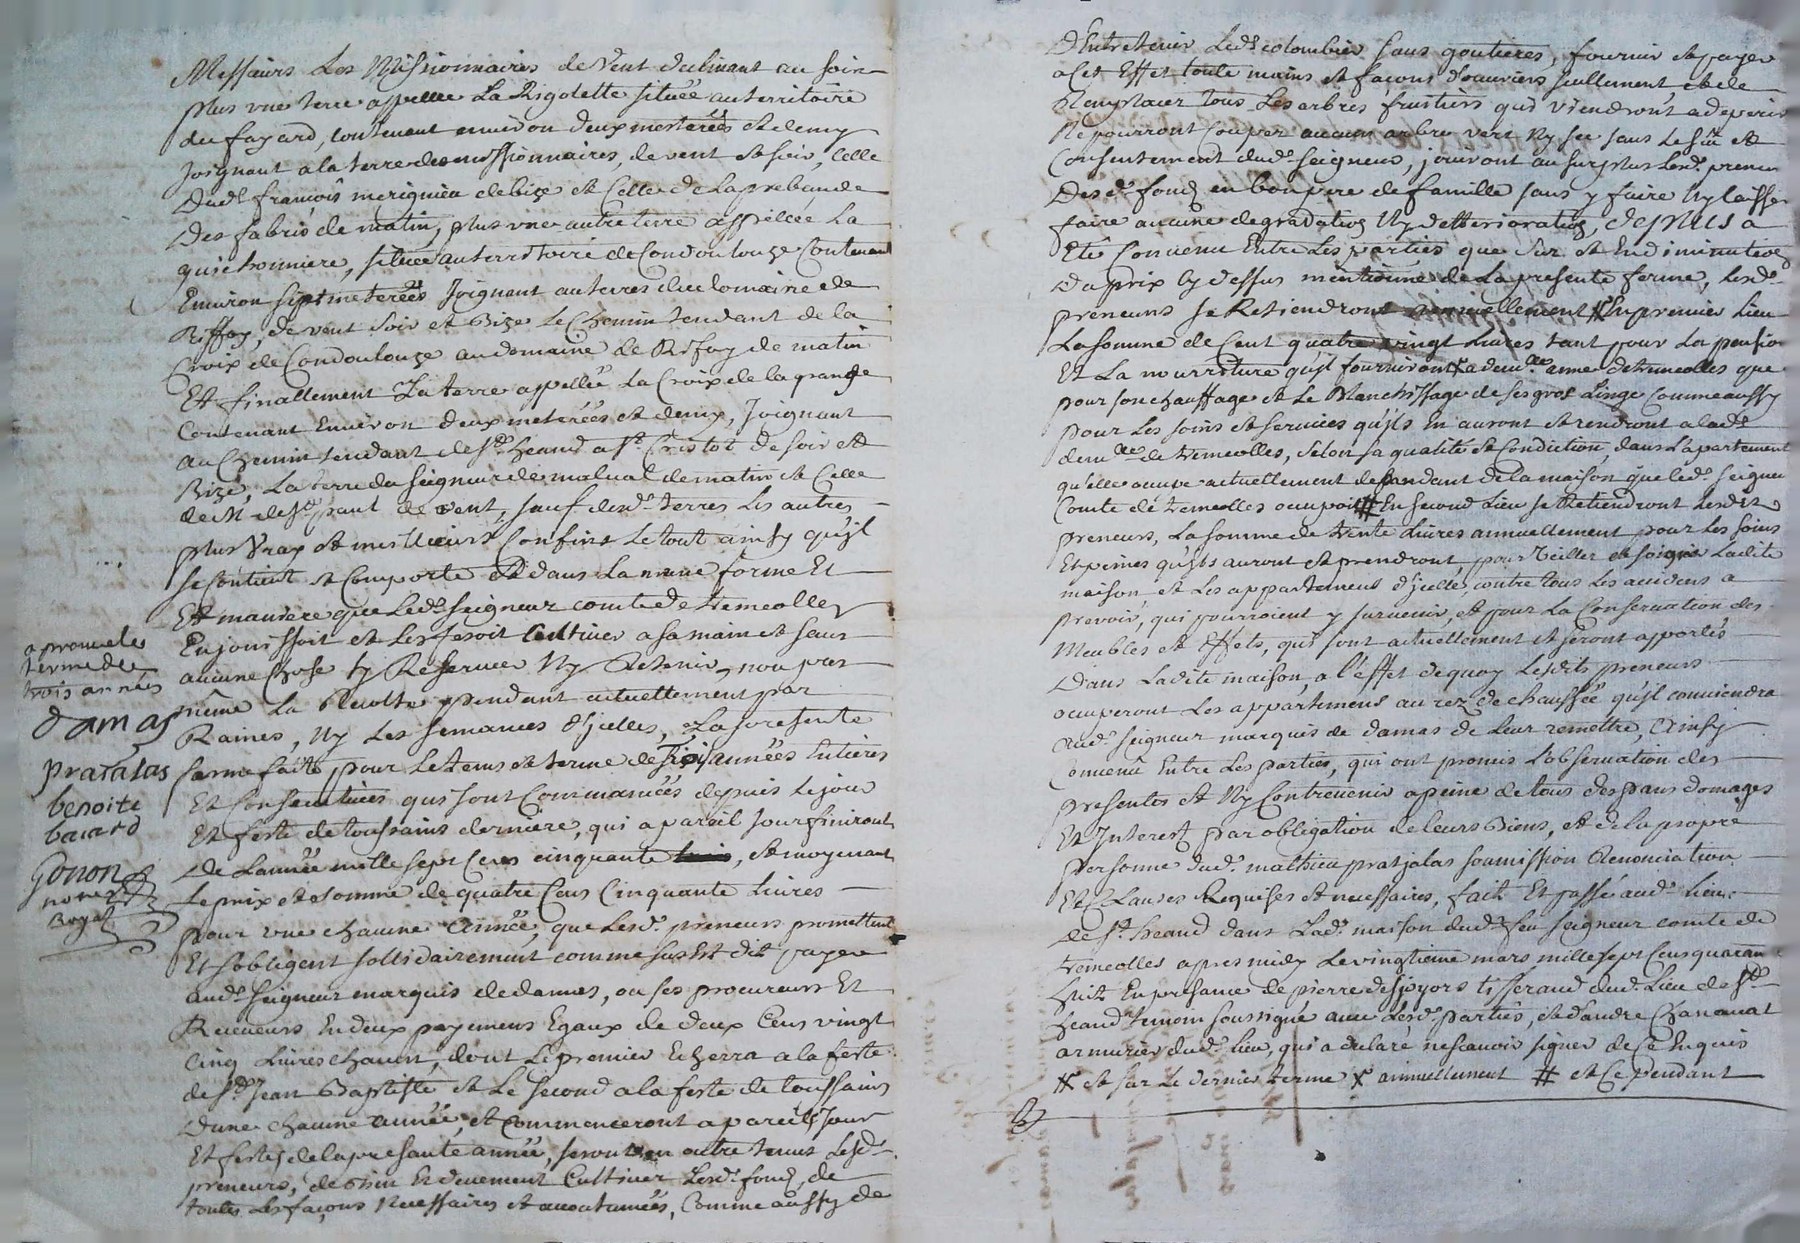 Messieurs Les Missionnaires de Vent declinant au soir
plus vne terre appellée La Rigolette située au territoire
du fayard, contenant environ deux mesterées et demy
Joignant a la terre des missionnaires, de vent et soir, Celle
Dud.t françois merignieu de bize et Celle de La prebande
Des fabris de matin, plus vne autre terre appellée La
quichonniere, située au territoire de Condoulouze Contenant
Environ sept meterées Joignant au terres du domaine de
Riffay, de vent soir et Bize Le Chemin tendant de la
Croix de Condoulouze au domaine de Riffay de matin
Et finallement La terre appellée La Croix de la grange
Contenant Environ deux meterées et demy, Joignant
au Chemin tendant de St. heand a St. Cristot de soir et
Bize, La terre du seigneur de malval de matin et Celle
de M de St. paul de vent, sauf desd. terres Les autres
plus Vray et meilleurs Confins Le tout ainsy qu'jl
se Contient et Comporte Et dans La meme forme Et
Et maniere que Led. seigneur comte de tremeolles
En jouissoit et Les fesoit Cultiver a sa main et sans
aucune Chose sy Reserver Ny Retenir, non pas
même La Recolte pendant actuellement par
Raines, Ny Les semances d'jcelles, La presente
ferme faite, pour Le tems et terme de Trois années Entieres
Et Consecutives qui sont Commancées depuis Le jour
Et feste de toussains derniere, qui a pareil Jour finiront
de L'année mille sept Cens cinquante, et moyenant
Le prix et somme de quatre Cens Cinquante Livres
pour vne chacune année, que Lesd. preneurs promettent
Et s'obligent sollidairement comme sus est dit payer
aud. seigneur marquis de damas, ou ses procureurs Et
Receveurs En deux payemens Egaux de deux Cens vingt
Cinq Livres chacun, dont Le premier Echerra a la feste
de St. Jean Baptiste et Le second a la feste de toussains
D'une chacune année, et Commenceront a pareils Jour
Et festes de la presante année, seront en outre tenus Lesd.
preneurs, de bien Et deuement Cultiver Lesd. fonds, de
toutes Les façons Necessaires et accoutumées, Comme aussy de
a prouve le
terme de
trois années
damas
pratalas
benoite
bavard
Gonon
noter
Royal
D'Entretenir Led. colombier sans goutieres, fournir et payer
a Cet Effet toute mains et façons d'ouvriers seullement, et de
Remplacer tous Les arbres fruitiers qui viendront a deperir
Ne pourront Couper aucun arbre vert Ny sec sans Le sçu et
Consentement dud. seigneur, jouiront au surplus Lesd. preneurs
Desd. fonds en bon pere de famille sans y faire Ny laisser
faire aucune degradation Ny deterioration, deplus a
Eté Convenu Entre Les parties que sur et En diminution
Du prix cy dessus mentionné de La presente ferme, Lesd.
preneurs se Retiendront annuellement # En premier Lieu
La somme de Cent quatre vingt Livres tant pour La pension
Et La nourriture qu'jl fourniront # a dem.lle anne de tremeolles que
pour son chauffage et Le Blanchissage de ses gros Linge Comme aussy
pour Les soins et services qu'jls En auront et rendront a lad.
dem.lle de tremeolles, selon sa qualité et Condiction, dans L'apartement
qu'elle occupe actuellement depandant de la maison que Led. seigneur
Comte de tremeolles occupoit # En second Lieu se Retiendront Lesdits
preneurs, La somme de trente Livres annuellement pour Les soins
Et peines qu'jls auront et prendront, pour Veiller et soigner Ladite
maison et Les appartemens d'jcelle, contre tous Les accidens a
prevoir, qui pourroient y survenir, et pour La Conservation des
Meubles et Effets, qui sont actuellement et seront apportés
Dans Ladite maison, a l'effet de quoy Lesdits preneurs
occuperont Les appartemens au rez de chaussée qu'jl conviendra
aud. seigneur marquis de damas de Leur remettre, Ainsy
Convenû Entre Les parties, qui ont promis L'observation des
presentes et Ny Contrevenir a peine de tous despans domages
Et Interest par obligation de leurs Biens, et de la propre
personne dud. mathieu pratjalas soumission Renonciation
Et Clauses Requises et necessaires, fait Et passé aud. Lieu
de St. heand dans Lad. maison dud. feu seigneur comte de
tremeolles apres midy Le vingtieme mars mille sept Cens quaran
huit En presance de pierre desjoyors tisserand dud. Lieu de St.
heand temoin soussigné avec Lesd. parties, et d'andre Chanavat
armurier dud. Lieu, qui a declaré ne scavoir signer de Ce Enquis
# et sur Le dernier terme # annuellement # et Cependant